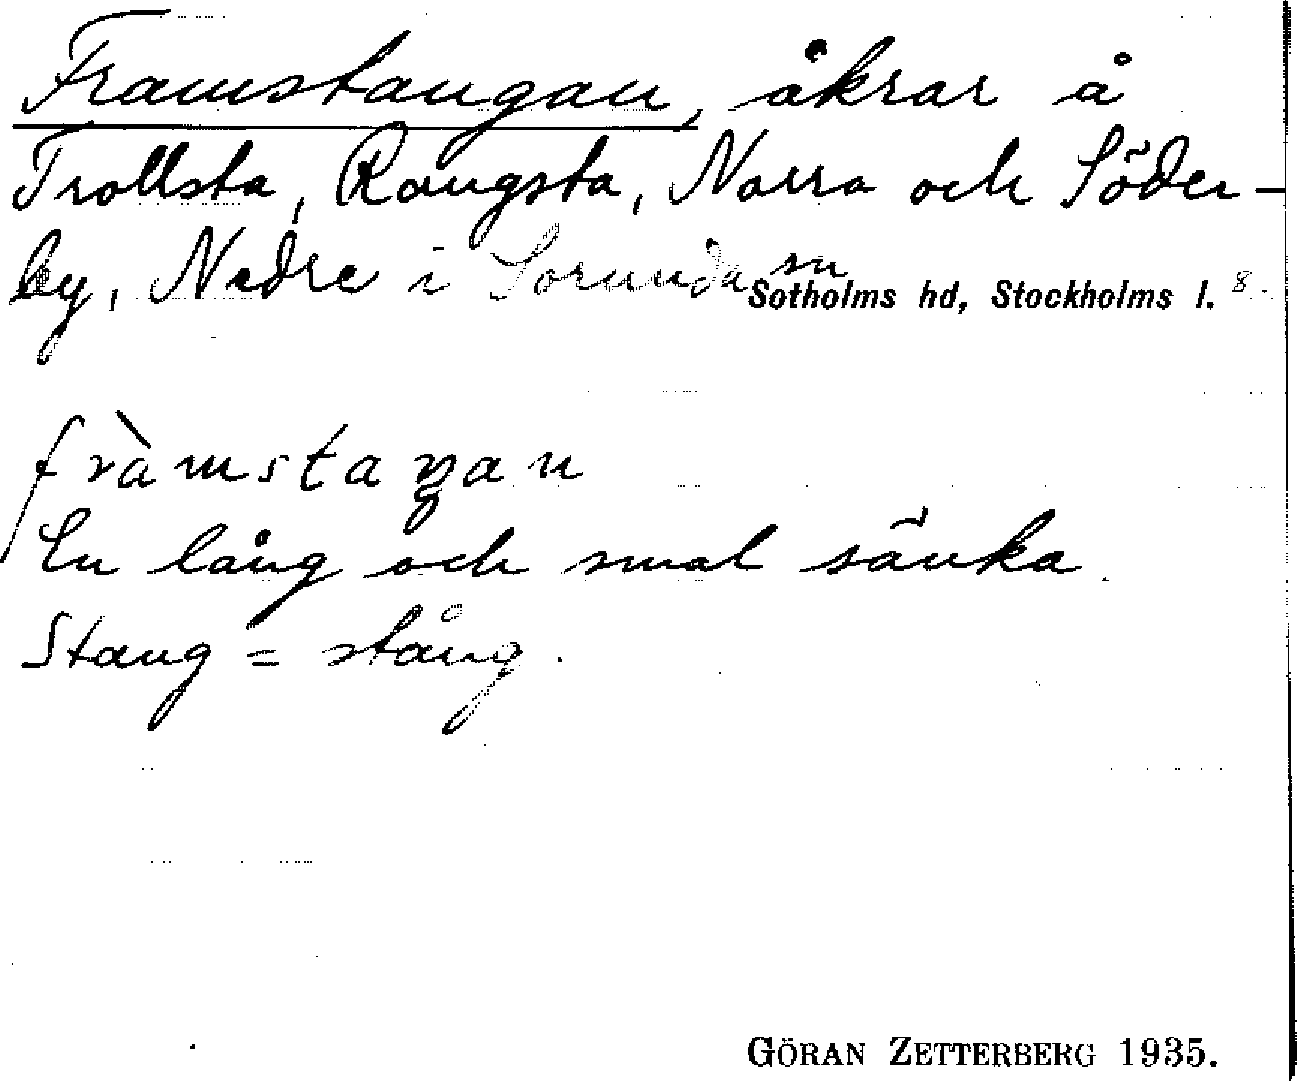 Framstangan, åkrar å
Trollsta, Rangsta, Norra och Söder-
by, Nedre i Sorunda sn
Sotholms hd, Stockholms l. 8.
fràmstaŋan
En lång och smal sänka.
Stang = stång.
GÖRAN ZETTERBERG 1935.